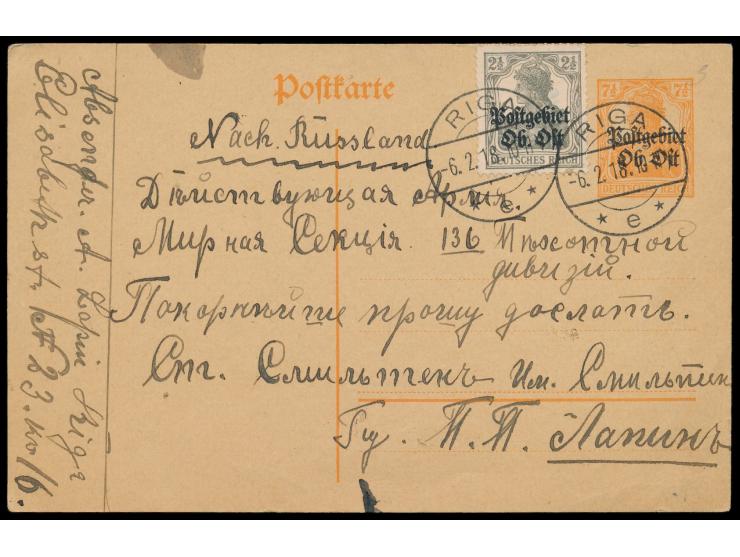 Postkarte
2½ 2½
Postgebiet
Ob. Ost
DEUTSCHES REICH
7½ 7½
Postgebiet
Ob. Ost
DEUTSCHES REICH
RIGA
-6.2.18.10-11
* e *
RIGA
-6.2.18.10
* e *
Nach Russland
Дѣйствующая Армія.
Мирная Секція. 136 Пѣхотной
дивизій.
Покорнѣйше прошу дослать.
Ст. Смильтенъ Им. Смильтин
Гу. Т. Т. Лапинъ
Absender. A. Lapin Riga
Elisabethst. 23. 16.